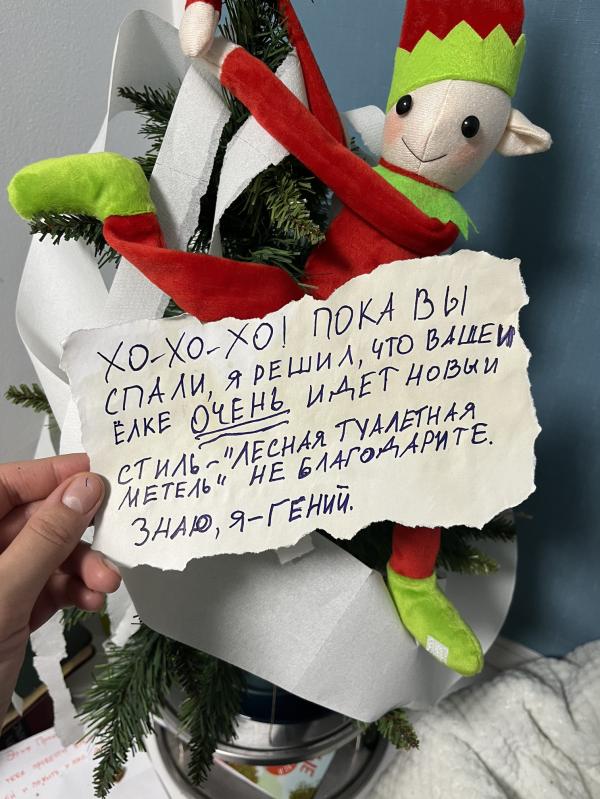 ХО-ХО-ХО! ПОКА ВЫ
СПАЛИ, Я РЕШИЛ, ЧТО ВАШЕЙ
ЁЛКЕ ОЧЕНЬ ИДЕТ НОВЫЙ
СТИЛЬ-"ЛЕСНАЯ ТУАЛЕТНАЯ
МЕТЕЛЬ" НЕ БЛАГОДАРИТЕ.
ЗНАЮ, Я-ГЕНИЙ.